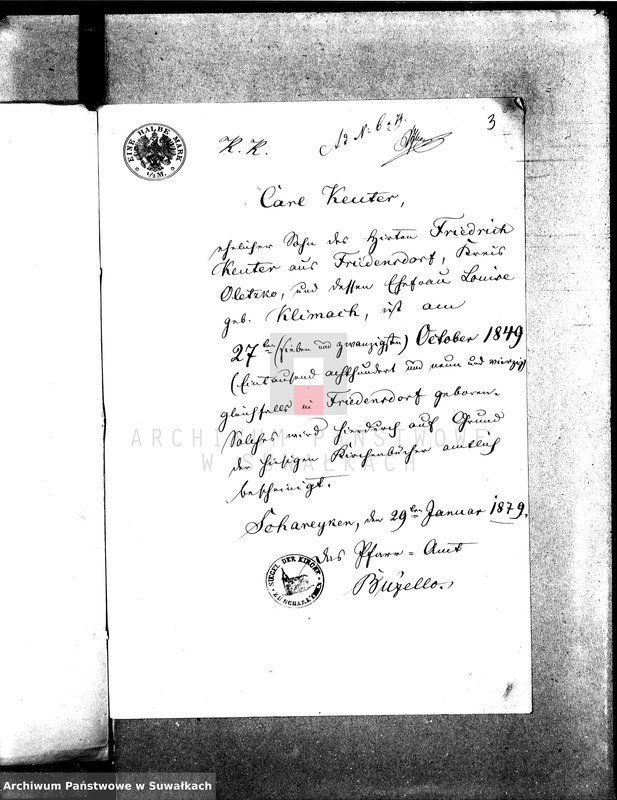 EINE HALBE MARK
1/2 M.
K. K.
Ad N: 6 & 7.
3
Carl Keuter,
ehelicher Sohn des Hirten Friedrich
Keuter aus Friedensdorf, Kreis
Oletzko, und dessen Ehefrau Louise
geb. Klimach, ist am
27ten (sieben und zwanzigsten) October 1849
(Eintausend achthundert und neun und vierzig)
gleichfalls in Friedensdorf geboren.
Solches wird hierdurch auf Grund
der hiesigen Kirchenbücher amtlich
bescheinigt.
Schareyken, den 29ten Januar 1879.
Das Pfarr-Amt
Buzello.
SIEGEL DER KIRCHE
ZU SCHAREYKEN
ARCHIWUM PAŃSTWOWE
W SUWAŁKACH
Archiwum Państwowe w Suwałkach